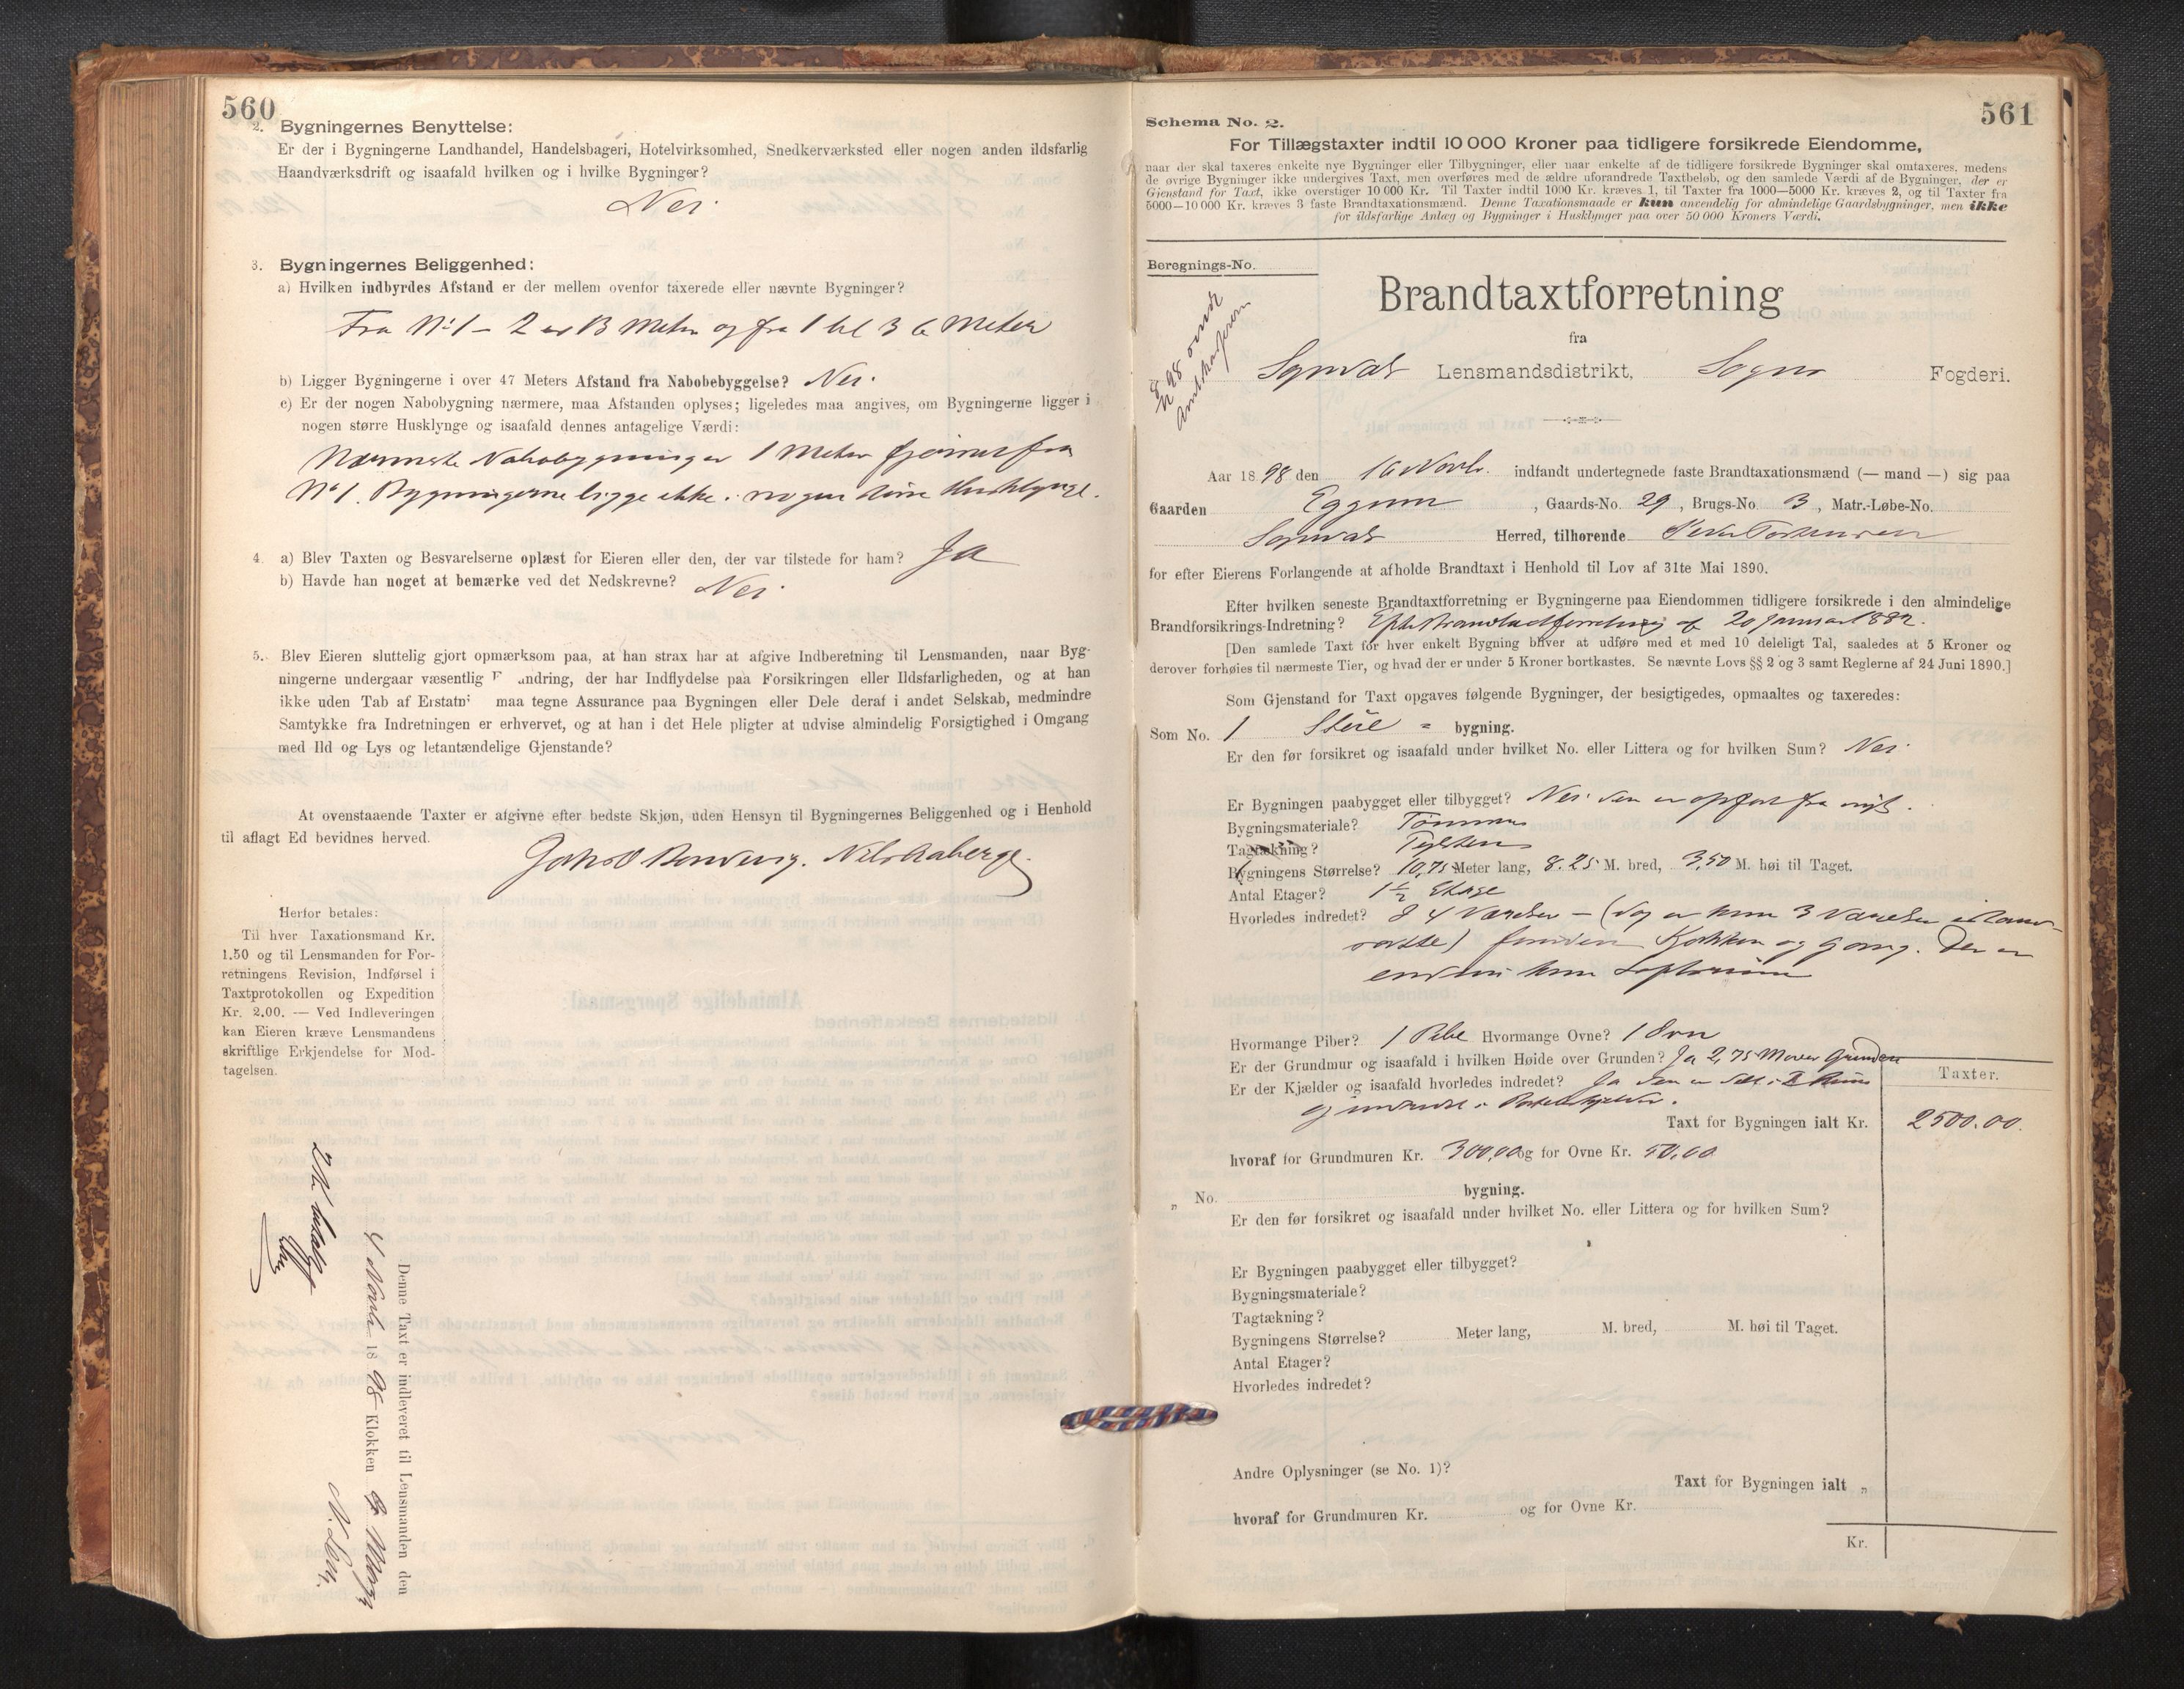 560
2. Bygningernes Benyttelse:
Er der i Bygningerne Landhandel, Handelsbageri, Hotelvirksomhed, Snedkerværksted eller nogen anden ildsfarlig
Haandværksdrift og isaafald hvilken og i hvilke Bygninger?
Nei.
3. Bygningernes Beliggenhed:
a) Hvilken indbyrdes Afstand er der mellem ovenfor taxerede eller nævnte Bygninger?
Fra No 1 - 2 er 13 Meter og fra 1 til 3 6 Meter
b) Ligger Bygningerne i over 47 Meters Afstand fra Nabobebyggelse? Nei.
c) Er der nogen Nabobygning nærmere, maa Afstanden oplyses; ligeledes maa angives, om Bygningerne ligger i
nogen større Husklynge og isaafald dennes antagelige Værdi:
Nærmeste Nabobygning er 1 Meter fjernet fra
No 1. Bygningerne ligge ikke i nogen større Husklynge.
4. a) Blev Taxten og Besvarelserne oplæst for Eieren eller den, der var tilstede for ham? Ja
b) Havde han noget at bemærke ved det Nedskrevne? Nei.
5. Blev Eieren sluttelig gjort opmærksom paa, at han strax har at afgive Indberetning til Lensmanden, naar Byg-
ningerne undergaar væsentlig F andring, der har Indflydelse paa Forsikringen eller Ildsfarligheden, og at han
ikke uden Tab af Erstatni maa tegne Assurance paa Bygningen eller Dele deraf i andet Selskab, medmindre
Samtykke fra Indretningen er erhvervet, og at han i det Hele pligter at udvise almindelig Forsigtighed i Omgang
med Ild og Lys og letantændelige Gjenstande?
At ovenstaaende Taxter er afgivne efter bedste Skjøn, uden Hensyn til Bygningernes Beliggenhed og i Henhold
til aflagt Ed bevidnes herved.
Nils Aaberge.
Herfor betales:
Til hver Taxationsmand Kr.
1.50 og til Lensmanden for For-
retningens Revision, Indførsel i
Taxtprotokollen og Expedition
Kr. 2.00. — Ved Indleveringen
kan Eieren kræve Lensmandens
skriftlige Erkjendelse for Mod-
tagelsen.
betalt
Denne Taxt er indleveret til Lensmanden den
4 Novbr 1898 Klokken
561
Schema No. 2.
For Tillægstaxter indtil 10 000 Kroner paa tidligere forsikrede Eiendomme,
naar der skal taxeres enkelte nye Bygninger eller Tilbygninger, eller naar enkelte af de tidligere forsikrede Bygninger skal omtaxeres, medens
de øvrige Bygninger ikke undergives Taxt, men overføres med de ældre uforandrede Taxtbeløb, og den samlede Værdi af de Bygninger, der er
Gjenstand for Taxt, ikke overstiger 10 000 Kr. Til Taxter indtil 1000 Kr. kræves 1, til Taxter fra 1000—5000 Kr. kræves 2, og til Taxter fra
5000—10 000 Kr. kræves 3 faste Brandtaxationsmænd. Denne Taxationsmaade er kun anvendelig for almindelige Gaardsbygninger, men ikke
for ildsfarlige Anlæg og Bygninger i Husklynger paa over 50 000 Kroners Værdi.
Beregnings-No.
Brandtaxtforretning
fra
Sogndal Lensmandsdistrikt, Sogns Fogderi.
Aar 1898 den 16 Novbr. indfandt undertegnede faste Brandtaxationsmænd (— mand —) sig paa
Gaarden Eggum, Gaards-No. 29, Brugs-No. 3, Matr.-Løbe-No.
Sogndal Herred, tilhørende
for efter Eierens Forlangende at afholde Brandtaxt i Henhold til Lov af 31te Mai 1890.
Efter hvilken seneste Brandtaxtforretning er Bygningerne paa Eiendommen tidligere forsikrede i den almindelige
Brandforsikrings-Indretning? Efter Brandtaxtforretning af 20 Januar 1882.
[Den samlede Taxt for hver enkelt Bygning bliver at udføre med et med 10 deleligt Tal, saaledes at 5 Kroner og
derover forhøies til nærmeste Tier, og hvad der er under 5 Kroner bortkastes. Se nævnte Lovs §§ 2 og 3 samt Reglerne af 24 Juni 1890.]
Som Gjenstand for Taxt opgaves følgende Bygninger, der besigtigedes, opmaaltes og taxeredes:
Som No. 1 Stue = bygning.
Er den før forsikret og isaafald under hvilket No. eller Littera og for hvilken Sum? Nei.
Er Bygningen paabygget eller tilbygget? Nei den er opført fra nyt.
Bygningsmateriale? Tømmer
Tagtækning?
Bygningens Størrelse? 10,75 Meter lang, 8.25 M. bred, 3,50 M. høi til Taget.
Antal Etager? 1 1/2 Etage
Hvorledes indret? I 4 Værelser - (dog er kun 3 Værelser
foruden Kjøkken og Gang. Der er
endnu kun
Hvormange Piber? 1 Pibe Hvormange Ovne? 1 Ovn
Er der Grundmur og isaafald i hvilken Høide over Grunden? Ja 2,75 M over Grunden
Er der Kjælder og isaafald hvorledes indredet? Ja den er delt i 2 Rum
Taxter.
Taxt for Bygningen ialt Kr. 2500.00.
hvoraf for Grundmuren Kr. 300,00 og for Ovne Kr. 50,00
„ No. bygning.
Er den før forsikret og isaafald under hvilket No. eller Littera og for hvilken Sum?
Er Bygningen paabygget eller tilbygget?
Bygningsmateriale?
Tagtækning?
Bygningens Størrelse? Meter lang, M. bred, M. høi til Taget.
Antal Etager?
Hvorledes indredet?
Andre Oplysninger (se No. 1)?
Taxt for Bygningen ialt „
hvoraf for Grundmuren Kr. og for Ovne Kr.
Kr.